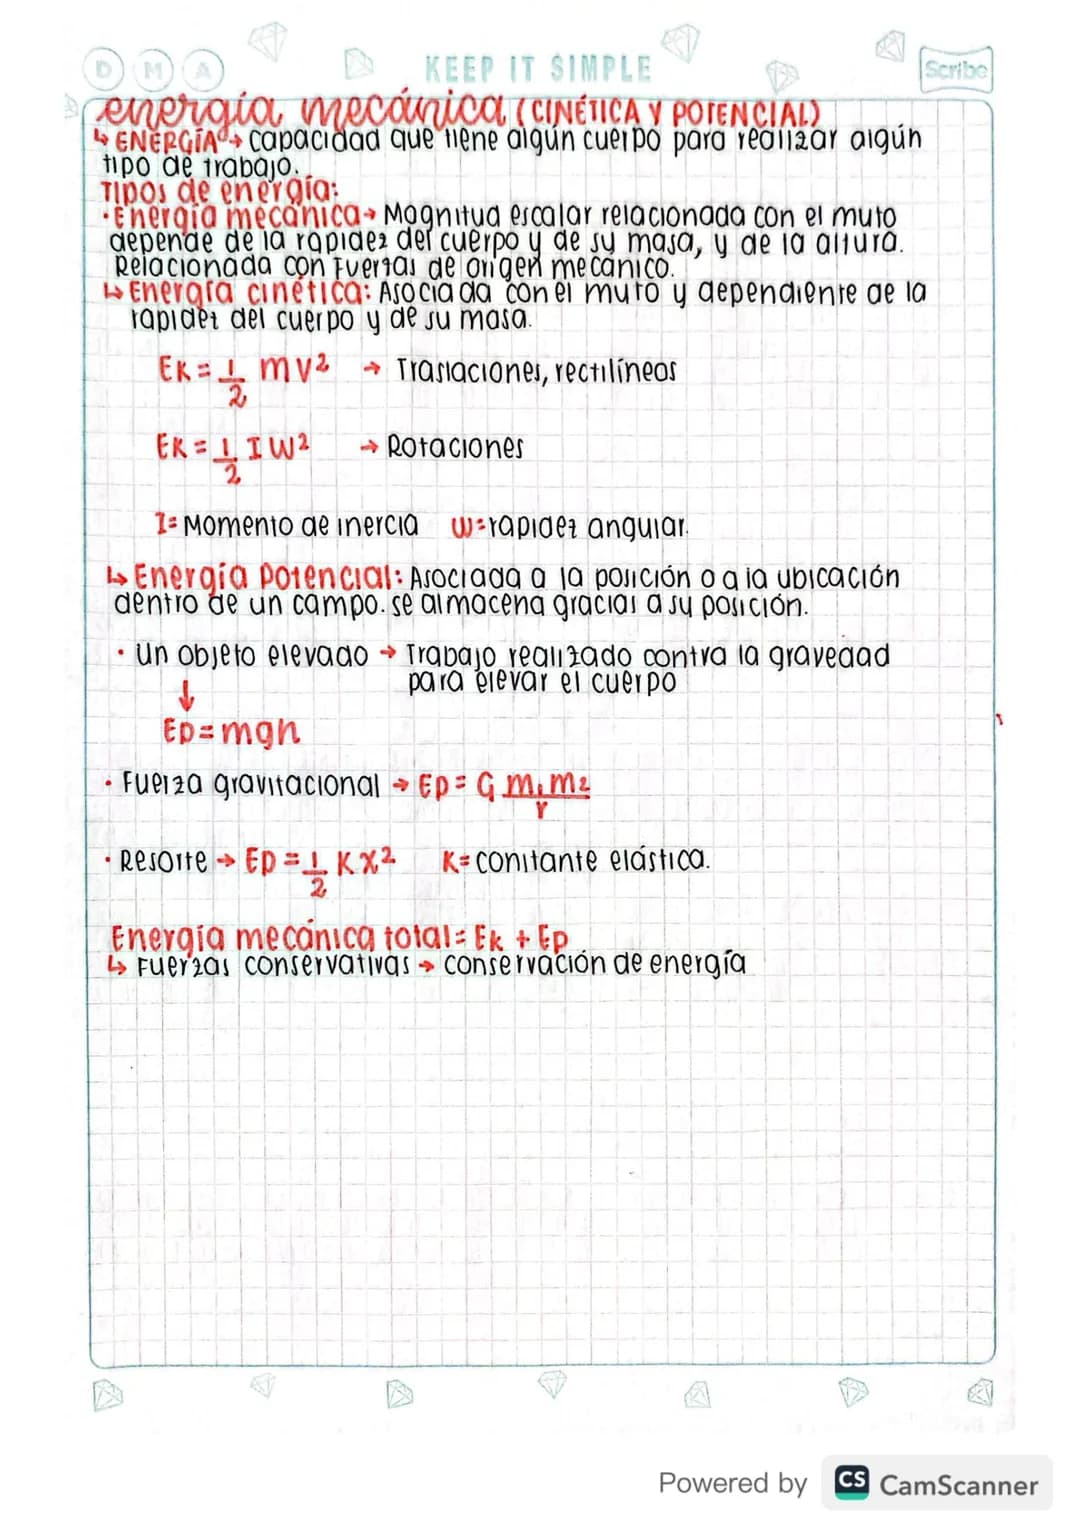 D M A KEEP IT SIMPLE Scribe
energía mecánica (CINÉTICA Y POTENCIAL)
↳ ENERGÍA → capacidad que tiene algún cuerpo para realizar algún
tipo de trabajo.
TIPOS de energía:
· Energía mecánica → Magnitud escalar relacionada con el muto
depende de la rapidez del cuerpo y de su masa, y de la altura.
Relacionada con Fuerzas de origen mecánico.
↳ Energía cinética: Asociada con el muto y dependiente de la
rapidez del cuerpo y de su masa.
EK = 1/2 mv² → Traslaciones, rectilíneos
EK = 1/2 I W² → Rotaciones
I = Momento de inercia W = rapidez angular.
↳ Energía Potencial: Asociada a la posición o a la ubicación
dentro de un campo. se almacena gracias a su posición.
· un objeto elevado → Trabajo realizado contra la gravedad
para elevar el cuerpo
↓
Ep = mgh
· Fuerza gravitacional → Ep = G m₁m₂/r
· Resorte → Ep = 1/2 K X² K = constante elástica.
Energía mecánica total = Ek + Ep
↳ Fuerzas conservativas → conservación de energía
Powered by CS CamScanner